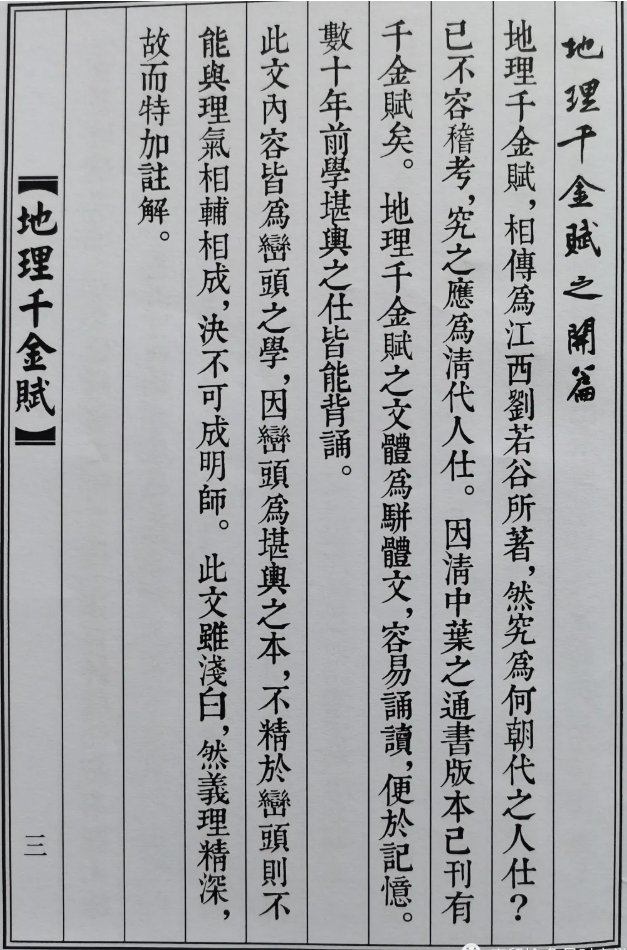 地理千金賦之開篇
地理千金賦，相傳爲江西劉若谷所著，然究爲何朝代之人仕？
已不容稽考，究之應爲清代人仕。因清中葉之通書版本已刊有
千金賦矣。地理千金賦之文體爲駢體文，容易誦讀，便於記憶。
數十年前學堪輿之仕皆能背誦。
此文內容皆爲巒頭之學，因巒頭爲堪輿之本，不精於巒頭則不
能與理氣相輔相成，決不可成明師。此文雖淺白，然義理精深，
故而特加註解。
【地理千金賦】
三